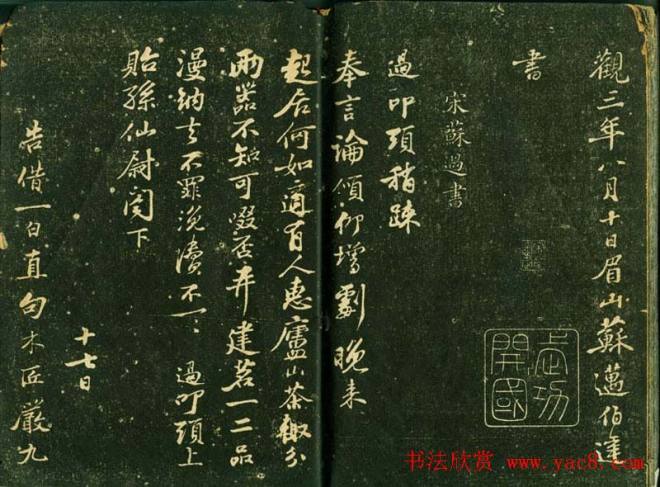 觀三年八月十日眉山蘇邁伯達
書
宋蘇過書
過叩頭稍疎
奉言論傾仰增劇晚来
起居何如適有人惠廬山茶輙分
兩器不知可啜否并建茗一二品
漫納去不罪浼瀆不一〻過叩頭上
貽孫仙尉閤下
十七日
告借一白直勾木匠嚴九
武功開國
书法欣赏 www.yac8.com